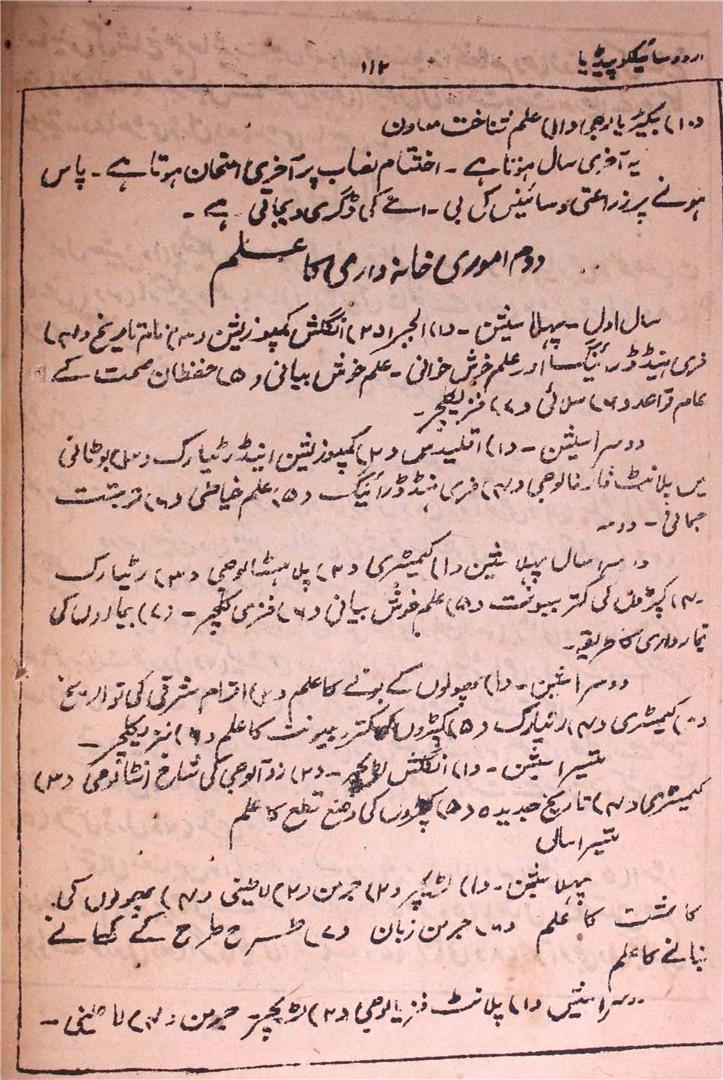 اردو سائیکلوپیڈیا
۱۱۲
(۱۰) بیکٹریالوجی (۱۱) علم شناخت معاون
یہ آخری سال ہوتا ہے۔ اختتام نصاب پر آخری امتحان ہوتا ہے۔ پاس
ہونے پر زراعتی و سائینس کی بی۔ اے کی ڈگری دیجاتی ہے۔
دوم اموری خانہ داری کا علم
سال اول۔ پہلا سیشن۔ (۱) الجبرا (۲) انگلش کمپوزیشن (۳) تاریخ (۴)
فری ہینڈ ڈرائینگ اور علم خوش خوانی۔ علم خوش بیانی (۵) حفظان صحت کے
عام قواعد (۶) سلائی (۷) فزیکلچر۔
دوسرا سیشن۔ (۱) اقلیدس (۲) کمپوزیشن اینڈ رٹیارک (۳) بوٹانی
میں پلانٹ مارفالوجی (۴) فری ہینڈ ڈرائینگ (۵) علم خیاطی (۶) تربیت
جسمانی۔
دوسرا سال پہلا سیشن (۱) کیمسٹری (۲) (۳) رٹیارک
(۴) کپڑوں کی کتر بیونت (۵) علم خوش بیانی (۶) فزی کلچر۔ (۷) بیماروں کی
تیمارداری کا طریقہ۔
دوسرا سیشن۔ (۱) پھولوں کے بونے کا علم (۲) اقوام مشرقی کی تواریخ
(۳) کیمسٹری (۴) رٹیارک (۵) کپڑوں کی کتر بیونت کا علم (۶) فزیکلچر۔
تیسرا سیشن۔ (۱) انگلش لٹریچر۔ (۲) زوآلوجی کی شارخ (۳)
کیمسٹری (۴) تاریخ جدیدہ (۵) کپڑوں کی وضع قطع کا علم
تیسرا سال
پہلا سیشن۔ (۱) لٹریچر (۲) جرمن (۳) لاطینی (۴) پھولوں کی
کاشت کا علم (۶) جرمن زبان (۷) طرح طرح کے کھانے
بنانے کا علم
دوسرا سیشن (۱) پلانٹ فزیالوجی (۲) لٹریچر۔ جرمن (۴) لاطینی۔